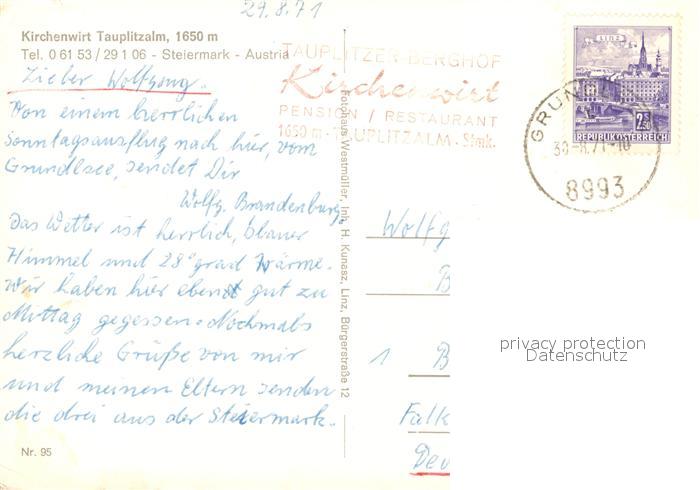 29.8.71
Kirchenwirt Tauplitzalm, 1650 m
Tel. 0 61 53 / 29 1 06 - Steiermark - Austria
TAUPLITZER-BERGHOF
Kirchenwirt
PENSION / RESTAURANT
1650 m - TAUPLITZALM - Stmk.
Lieber Wolfgang.
Von einem herrlichen
Sonntagsausflug nach hier, vom
Grundlsee, sendet Dir
Wolfg. Brandenburg.
Das Wetter ist herrlich, blauer
Himmel und 28° grad Wärme.
Wir haben hier eben gut zu
Mittag gegessen. Nochmals
herzliche Grüße von mir
und meinen Eltern senden
die drei aus der Steiermark.
Nr. 95
Fotohaus Westmüller, Inh. H. Kunasz, Linz, Bürgerstraße 12
LINZ
2.50
REPUBLIK ÖSTERREICH
GRUN
30.-8.71-10
8993
Wolfg
B
1 B
Falk
Deu
privacy protection
Datenschutz